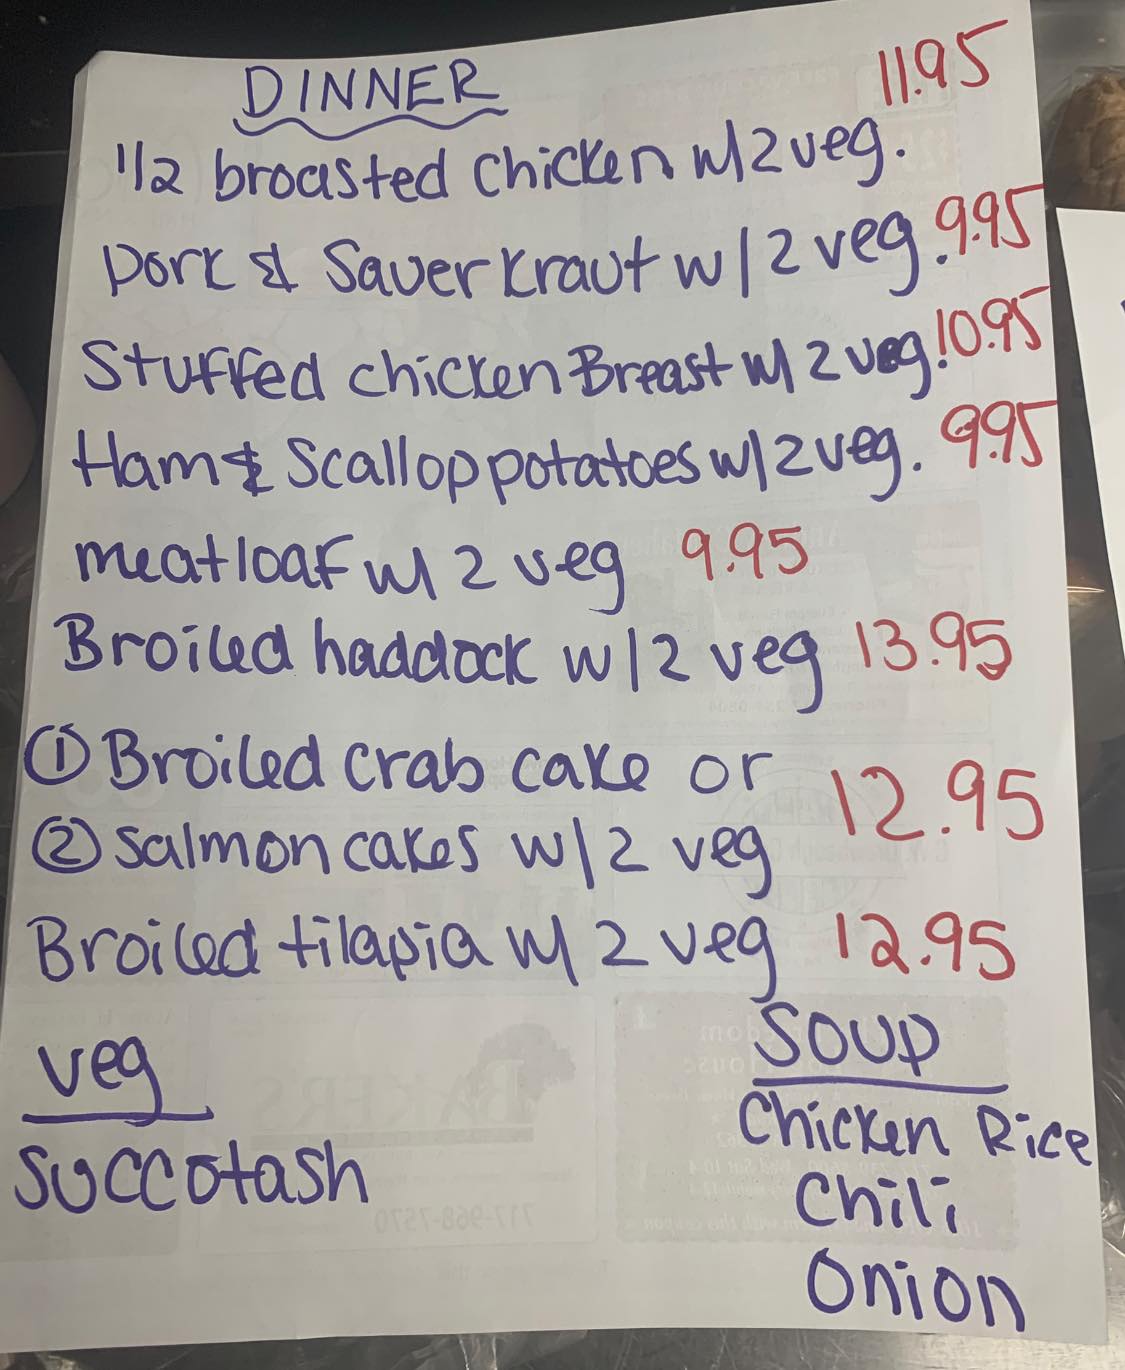 DINNER 11.95
1/2 broasted chicken w/2 veg.
Pork & Sauerkraut w/2 veg. 9.95
Stuffed chicken Breast w/ 2 veg. 10.95
Ham & Scallop potatoes w/2 veg. 9.95
meatloaf w/ 2 veg 9.95
Broiled haddock w/2 veg 13.95
① Broiled crab cake or 12.95
② salmon cakes w/2 veg
Broiled tilapia w/ 2 veg 12.95
veg
Succotash
SOUP
Chicken Rice
Chili
Onion
717-968-7570